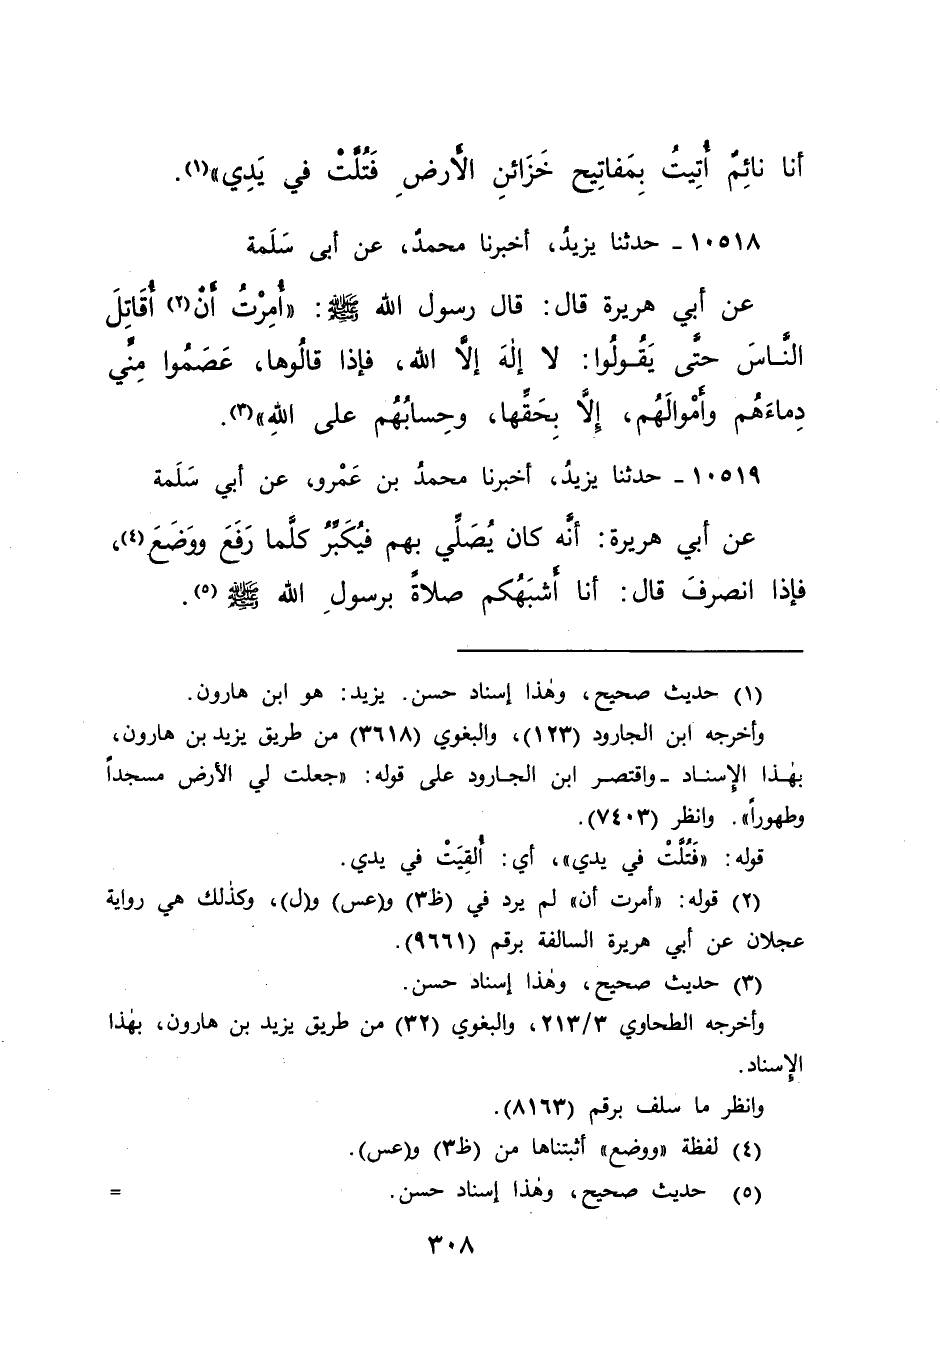 أنا نائِمٌ أُتِيتُ بِمَفاتِيح خَزَائنِ الأَرضِ فَتُلَّتْ في يَدِي»(١).
١٠٥١٨ ـ حدثنا يزيدُ، أخبرنا محمدٌ، عن أبى سَلَمة
عن أبي هريرة قال: قال رسول الله ﷺ: «أُمِرْتُ أَنْ(٢) أُقَاتِلَ
النَّاسَ حتَّى يَقُولُوا: لا إلٰهَ إلَّا الله، فإذا قالُوها، عَصَمُوا مِنِّي
دِماءَهُم وأَمْوالَهُم، إلَّا بِحَقِّها، وحِسابُهُم على اللهِ»(٣).
١٠٥١٩ ـ حدثنا يزيدُ، أخبرنا محمدُ بن عَمْرو، عن أبي سَلَمة
عن أبي هريرة: أنَّه كان يُصَلِّي بهم فيُكَبِّرُ كلَّما رَفَعَ ووَضَعَ(٤)،
فإذا انصرفَ قال: أنا أَشبَهُكم صلاةً برسولِ الله ﷺ(٥).
(١) حديث صحيح، وهٰذا إسناد حسن. يزيد: هو ابن هارون.
وأخرجه ابن الجارود (١٢٣)، والبغوي (٣٦١٨) من طريق يزيد بن هارون،
بهٰذا الإسناد ـ واقتصر ابن الجارود على قوله: «جعلت لي الأرض مسجداً
وطهوراً». وانظر (٧٤٠٣).
قوله: «فَتُلَّتْ في يدي»، أي: أُلقِيَتْ في يدي.
(٢) قوله: «أمرت أن» لم يرد في (ظ٣) و(عس) و(ل)، وكذٰلك هي رواية
عجلان عن أبي هريرة السالفة برقم (٩٦٦١).
(٣) حديث صحيح، وهٰذا إسناد حسن.
وأخرجه الطحاوي ٢١٣/٣، والبغوي (٣٢) من طريق يزيد بن هارون، بهٰذا
الإسناد.
وانظر ما سلف برقم (٨١٦٣).
(٤) لفظة «ووضع» أثبتناها من (ظ٣) و(عس).
(٥) حديث صحيح، وهٰذا إسناد حسن. =
٣٠٨